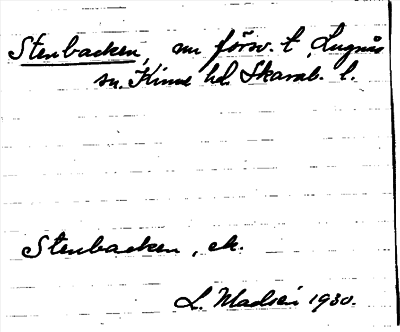 Stenbacken, nu försv. t, Lugnås
sn. Kinne hd. Skarab. l.
Stenbacken, ek.
L. Madsén 1930.